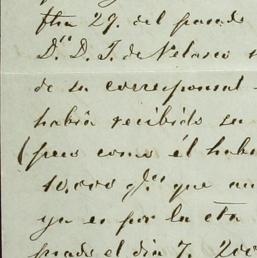 fha 29. del pasado
D.ⁿ D. J. de Velasco
de su corresponsal
había recibido su
(pero como él habe
10.000 p.ˢ que au
ya es por la cta
prado el dia 7. 200